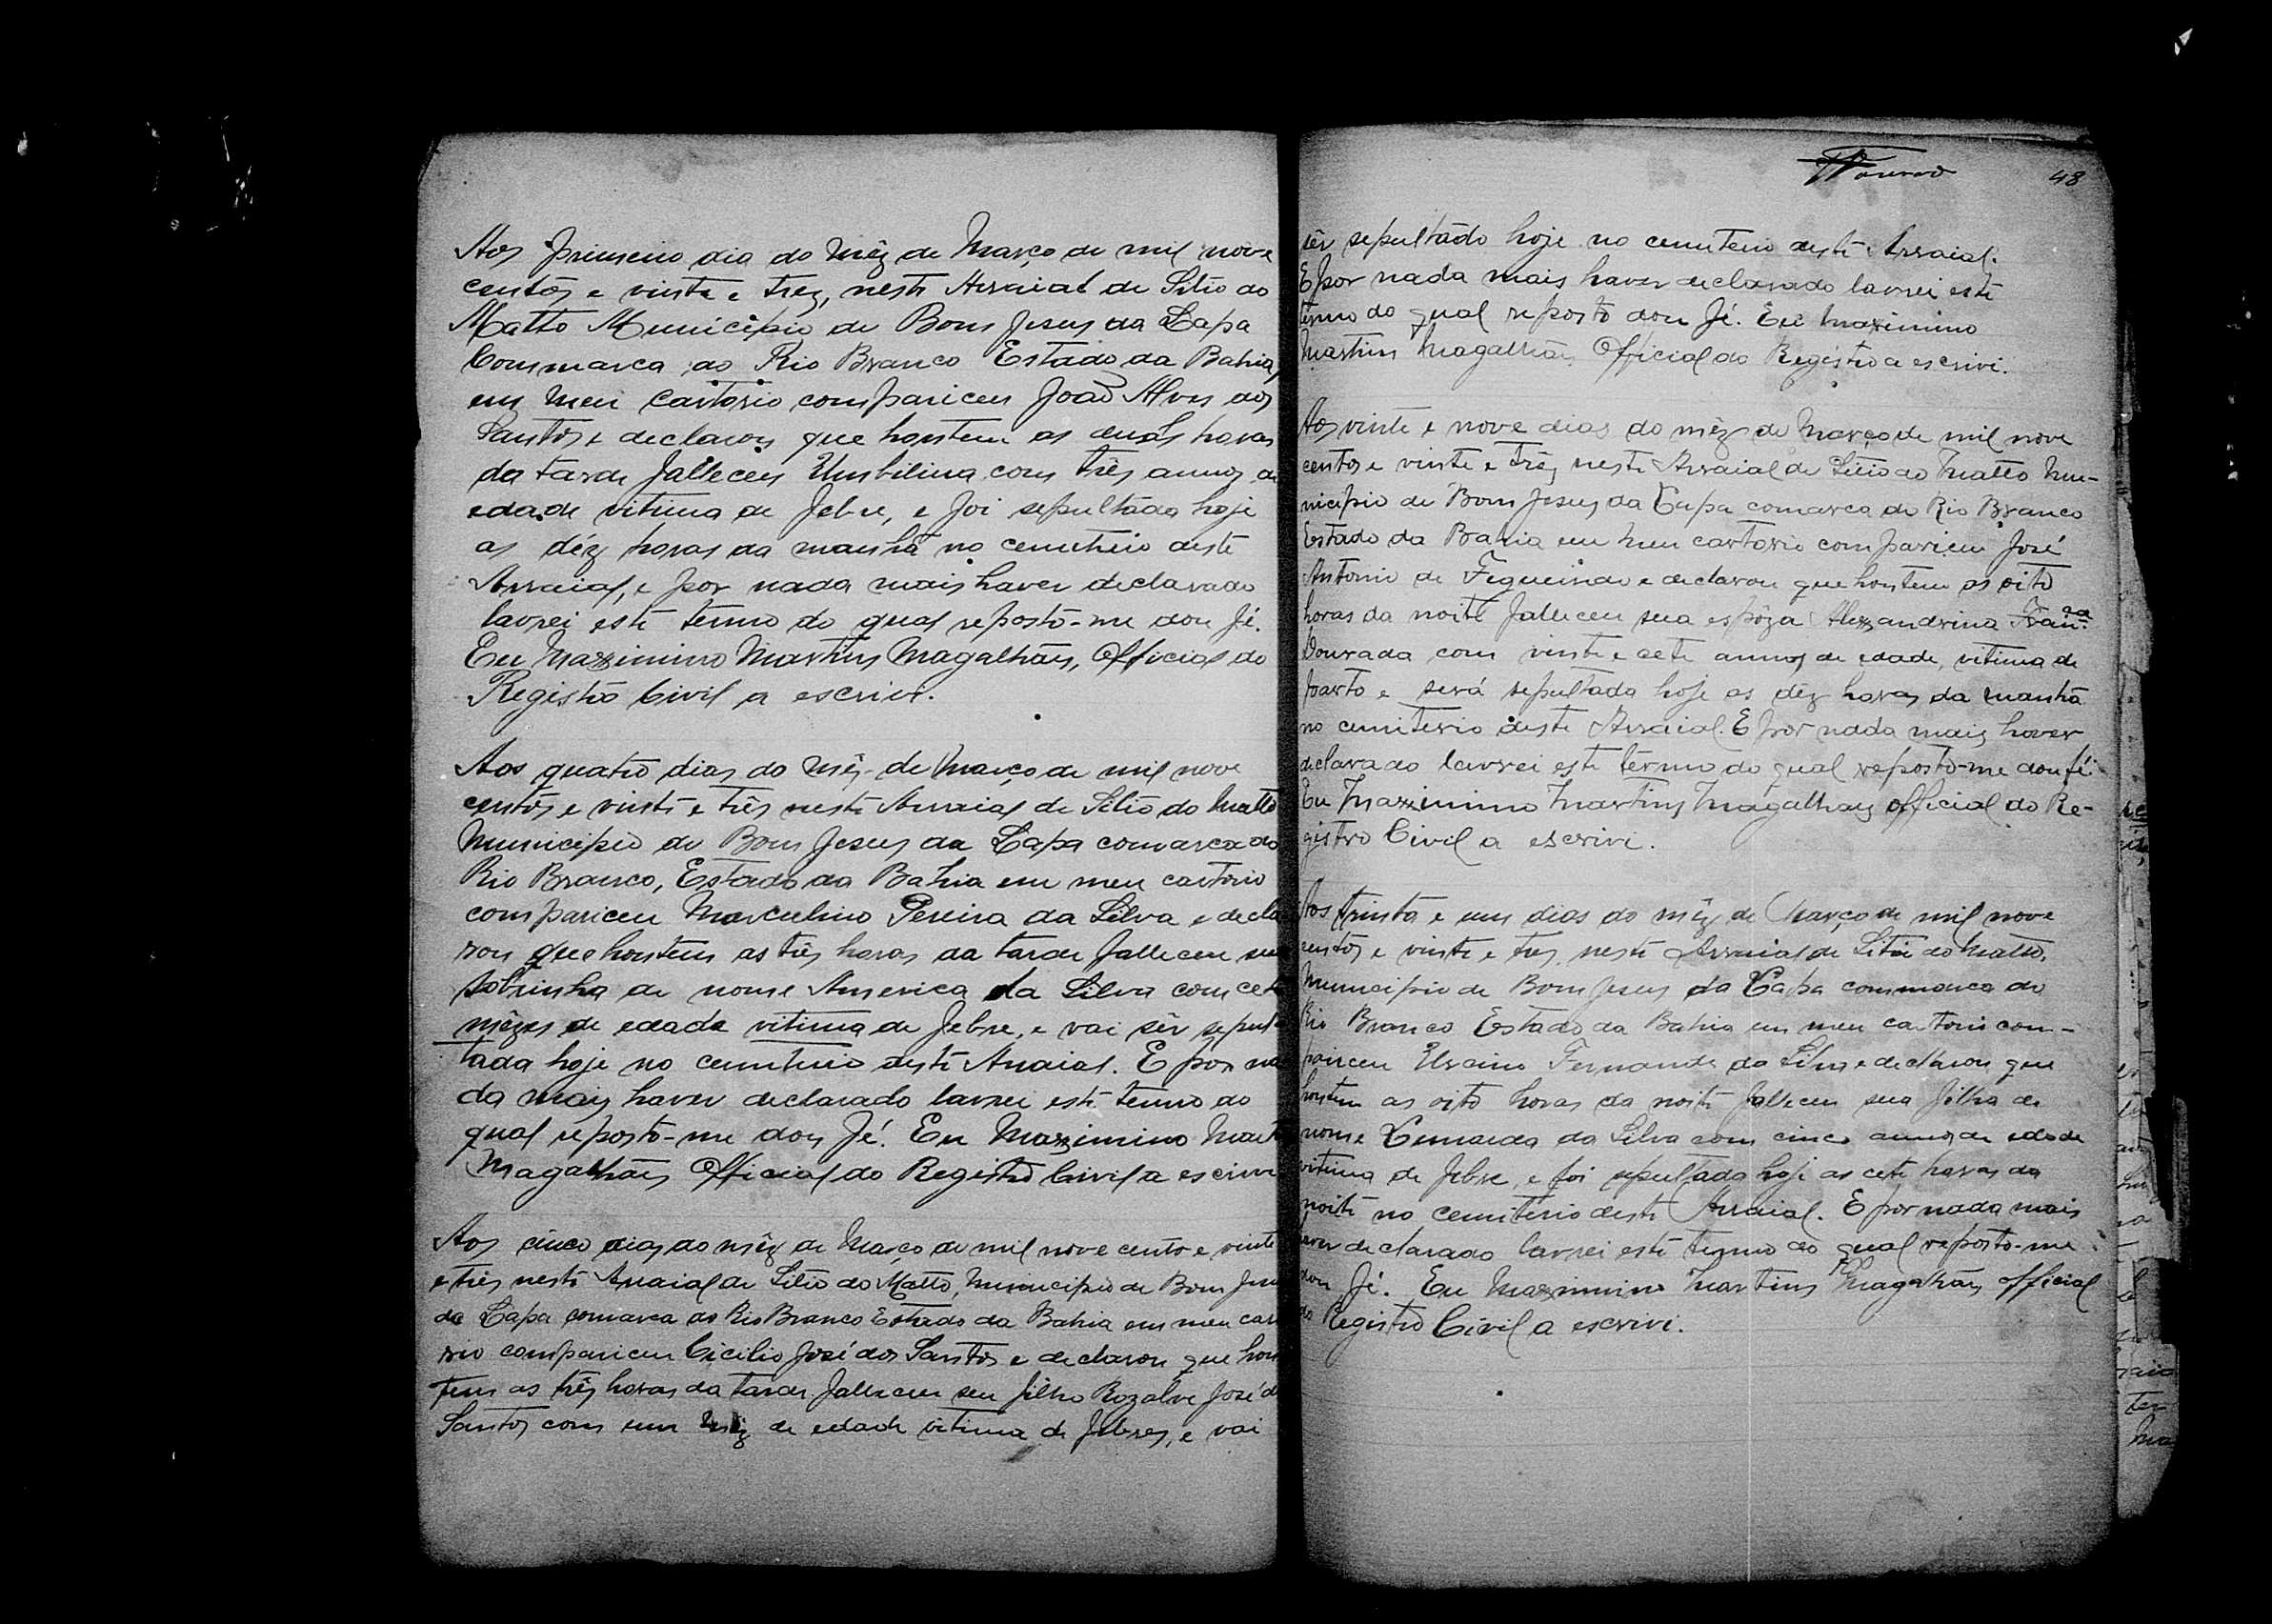 Aos primeiro dia do mêz de Março de mil nove
centos e vinte e trez, neste Arraial de Sitio do
Matto Municipio de Bom Jesus da Lapa
Commarca do Rio Branco Estado da Bahia,
em meu cartorio compariceu João Alves dos
Santos e declarou que hontem as duas horas
da tarde falleceu Umbilina com três annos de
edade vitima de febre, e foi sepultada hoje
as déz horas da manhã no cemiterio deste
Arraial, e por nada mais haver declarado
lavrei este termo do qual reposto-me dou fé.
Eu Mazzimino Martins Magalhães, Official do
Registro Civil a escrivi.
Aos quatro dias do mêz de Março de mil nove
centos e vinte e três neste Arraial de Sitio do Matto
Municipio de Bom Jesus da Lapa comarca do
Rio Branco, Estado da Bahia em meu cartorio
compariceu Marculino Pereira da Silva e decla
rou que hontem as três horas da tarde falleceu sua
sobrinha de nome America da Silva com cete
mêzes de edade vitima de febre, e vai sêr sepul
tada hoje no cemiterio deste Arraial. E por na
da mais haver declarado lavrei este termo do
qual reposto-me dou fé. Eu Mazzimino Marti
Magalhães Official do Registro Civil a escrivi
Aos cinco dias do mêz de Março de mil nove cento e vinte
e três neste Arraial de Sitio do Matto, Municipio de Bom Jesu
da Lapa comarca do Rio Branco Estado da Bahia em meu car
rio compariceu Cicilio José dos Santos e declarou que hon
tem as três horas da tarde falleceu seu filho Rozalve José d
Santos com um mêz de edade vitima de febres, e vai
48
sêr sepultado hoje no cemiterio deste Arraial.
E por nada mais haver declarado lavrei este
termo do qual reposto dou fé. Eu Maximino
Martins Magalhães Official do Registro a escrivi.
Aos vinte e nove dias do mêz de Março de mil nove
centos e vinte e três neste Arraial de Sitio do Matto Mu-
nicipio de Bom Jesus da Lapa comarca do Rio Branco
Estado da Bahia em meu cartorio compariceu José
Antonio de Figueirado e declarou que hontem as oito
horas da noite falleceu sua espôza Alexandrina Fran.ca
Dourada com vinte e cete annos de edade, vitima de
parto e será sepultada hoje as déz horas da manhã
no cemiterio deste Arraial. E por nada mais haver
declarado lavrei este têrmo do qual reposto-me dou fé
Eu Mazzimino Martins Magalhães official do Re-
gistro Civil a escrivi.
Aos trinta e um dias do mêz de Março de mil nove
centos e vinte e tres, neste Arraial de Sitio do Matto,
Municipio de Bom Jesus da Lapa commarca do
Rio Branco Estado da Bahia em meu cartorio com-
pariceu Fernande da Silva e declarou que
hontem as oito horas da noite falleceu sua filha de
nome da Silva com cinco annos de edade
vitima de febre, e foi sepultada hoje as cete horas da
noite no cemiterio deste Arraial. E por nada mais
haver declarado lavrei este termo do qual reposto-me
dou fé. Eu Mazzimino Martins Magalhães official
do Registro Civil a escrivi.